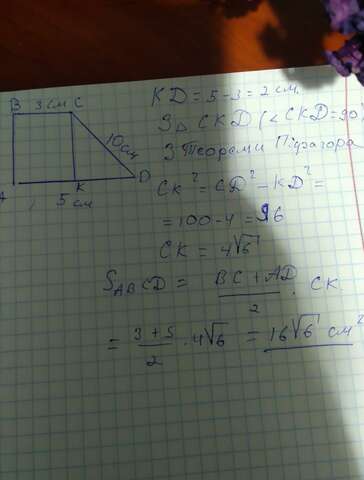 B 3 см C
10 см
A K D
5 см
KD = 5 - 3 = 2 см.
З Δ CKD (∠CKD = 90
З Теореми Піфагора
CK² = CD² - KD² =
= 100 - 4 = 96
CK = 4√6
S ABCD = BC + AD / 2 · CK
= 3 + 5 / 2 · 4√6 = 16√6 см²